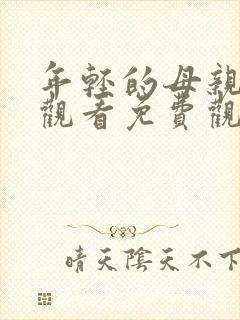 年轻的母親
觀看免費觀
晴天陰天不下